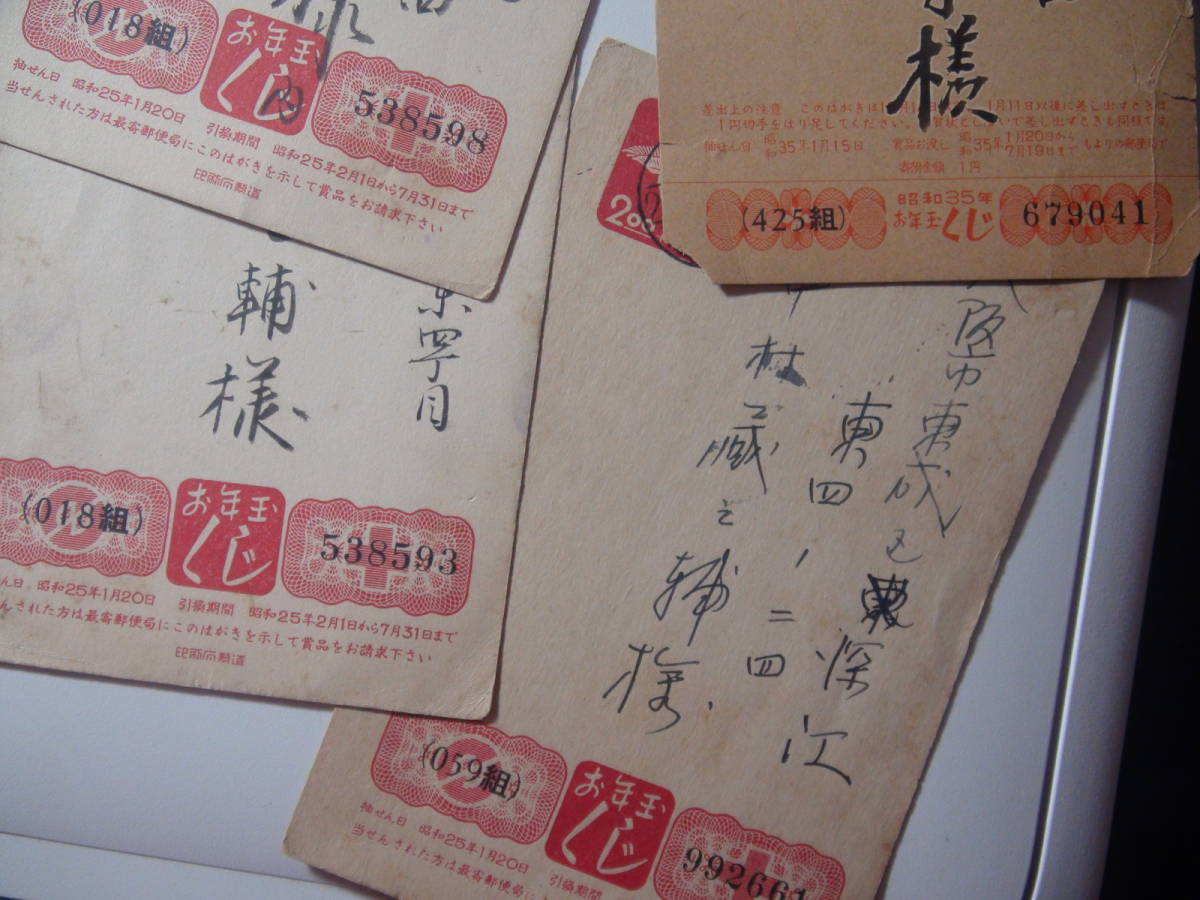 様
(018組)
お年玉
くじ
内
538598
抽せん日 昭和25年1月20日 引換期間 昭和25年2月1日から7月31日まで
当せんされた方は最寄郵便局にこのはがきを示して賞品をお請求下さい
東四丁目
輔様
(018組)
お年玉
くじ
538593
せん日 昭和25年1月20日 引換期間 昭和25年2月1日から7月31日まで
せんされた方は最寄郵便局にこのはがきを示して賞品をお請求下さい
様
差出上の注意 このはがきは
1月11日以後に差し出すときは
1円切手をはり足してください。
で差し出すときも同様です。
抽せん日 昭和35年1月15日 賞品お渡し 昭和35年1月20日から7月19日まで もよりの郵便局で
寄附金額 1円
(425組)
昭和35年
お年玉くじ
679041
2.00
阪市東成区
深江
東四ノ二四
村蔵之輔様
(059組)
お年玉
くじ
992661
抽せん日 昭和25年1月20日 引換期間
当せんされた方は最寄郵便局にこのはがきを示して賞品